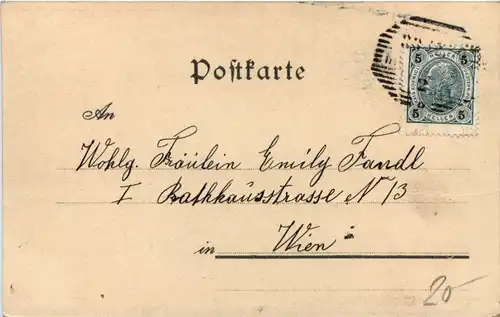 Postkarte
5 5
HELLER
5 5
An
Wohlg. Fräulein Emily Fandl
I Rathhausstrasse N 13
in Wien
20-